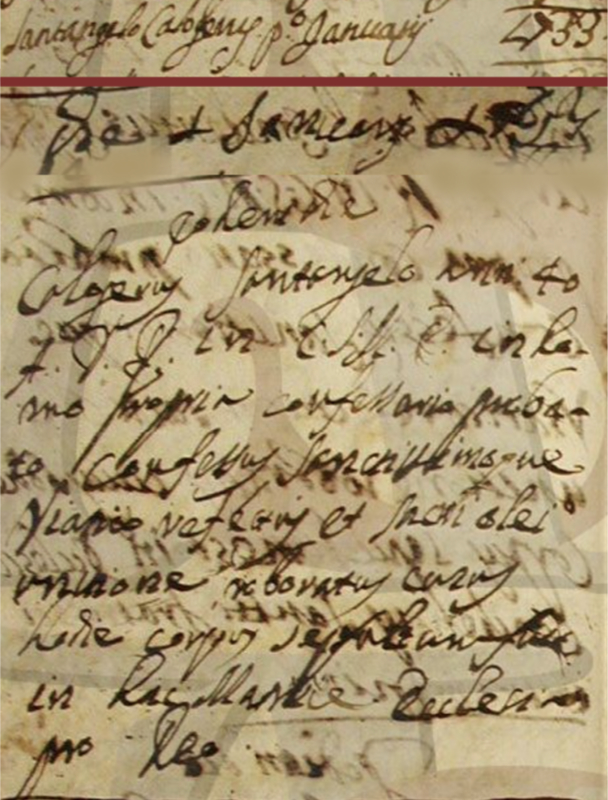 Santangelo Calogerus p.o January 4733
Die January
eodem die
Calogerus Santangelo ann. 40
in C. S. M. E. in ho-
mo propria confessario proba-
to confessus Sanctissimoque
Viatico refectus et sacri olei
unctione roboratus cuius
hodie corpus sepultum fuit
in hac Matrice Ecclesia
pro Deo